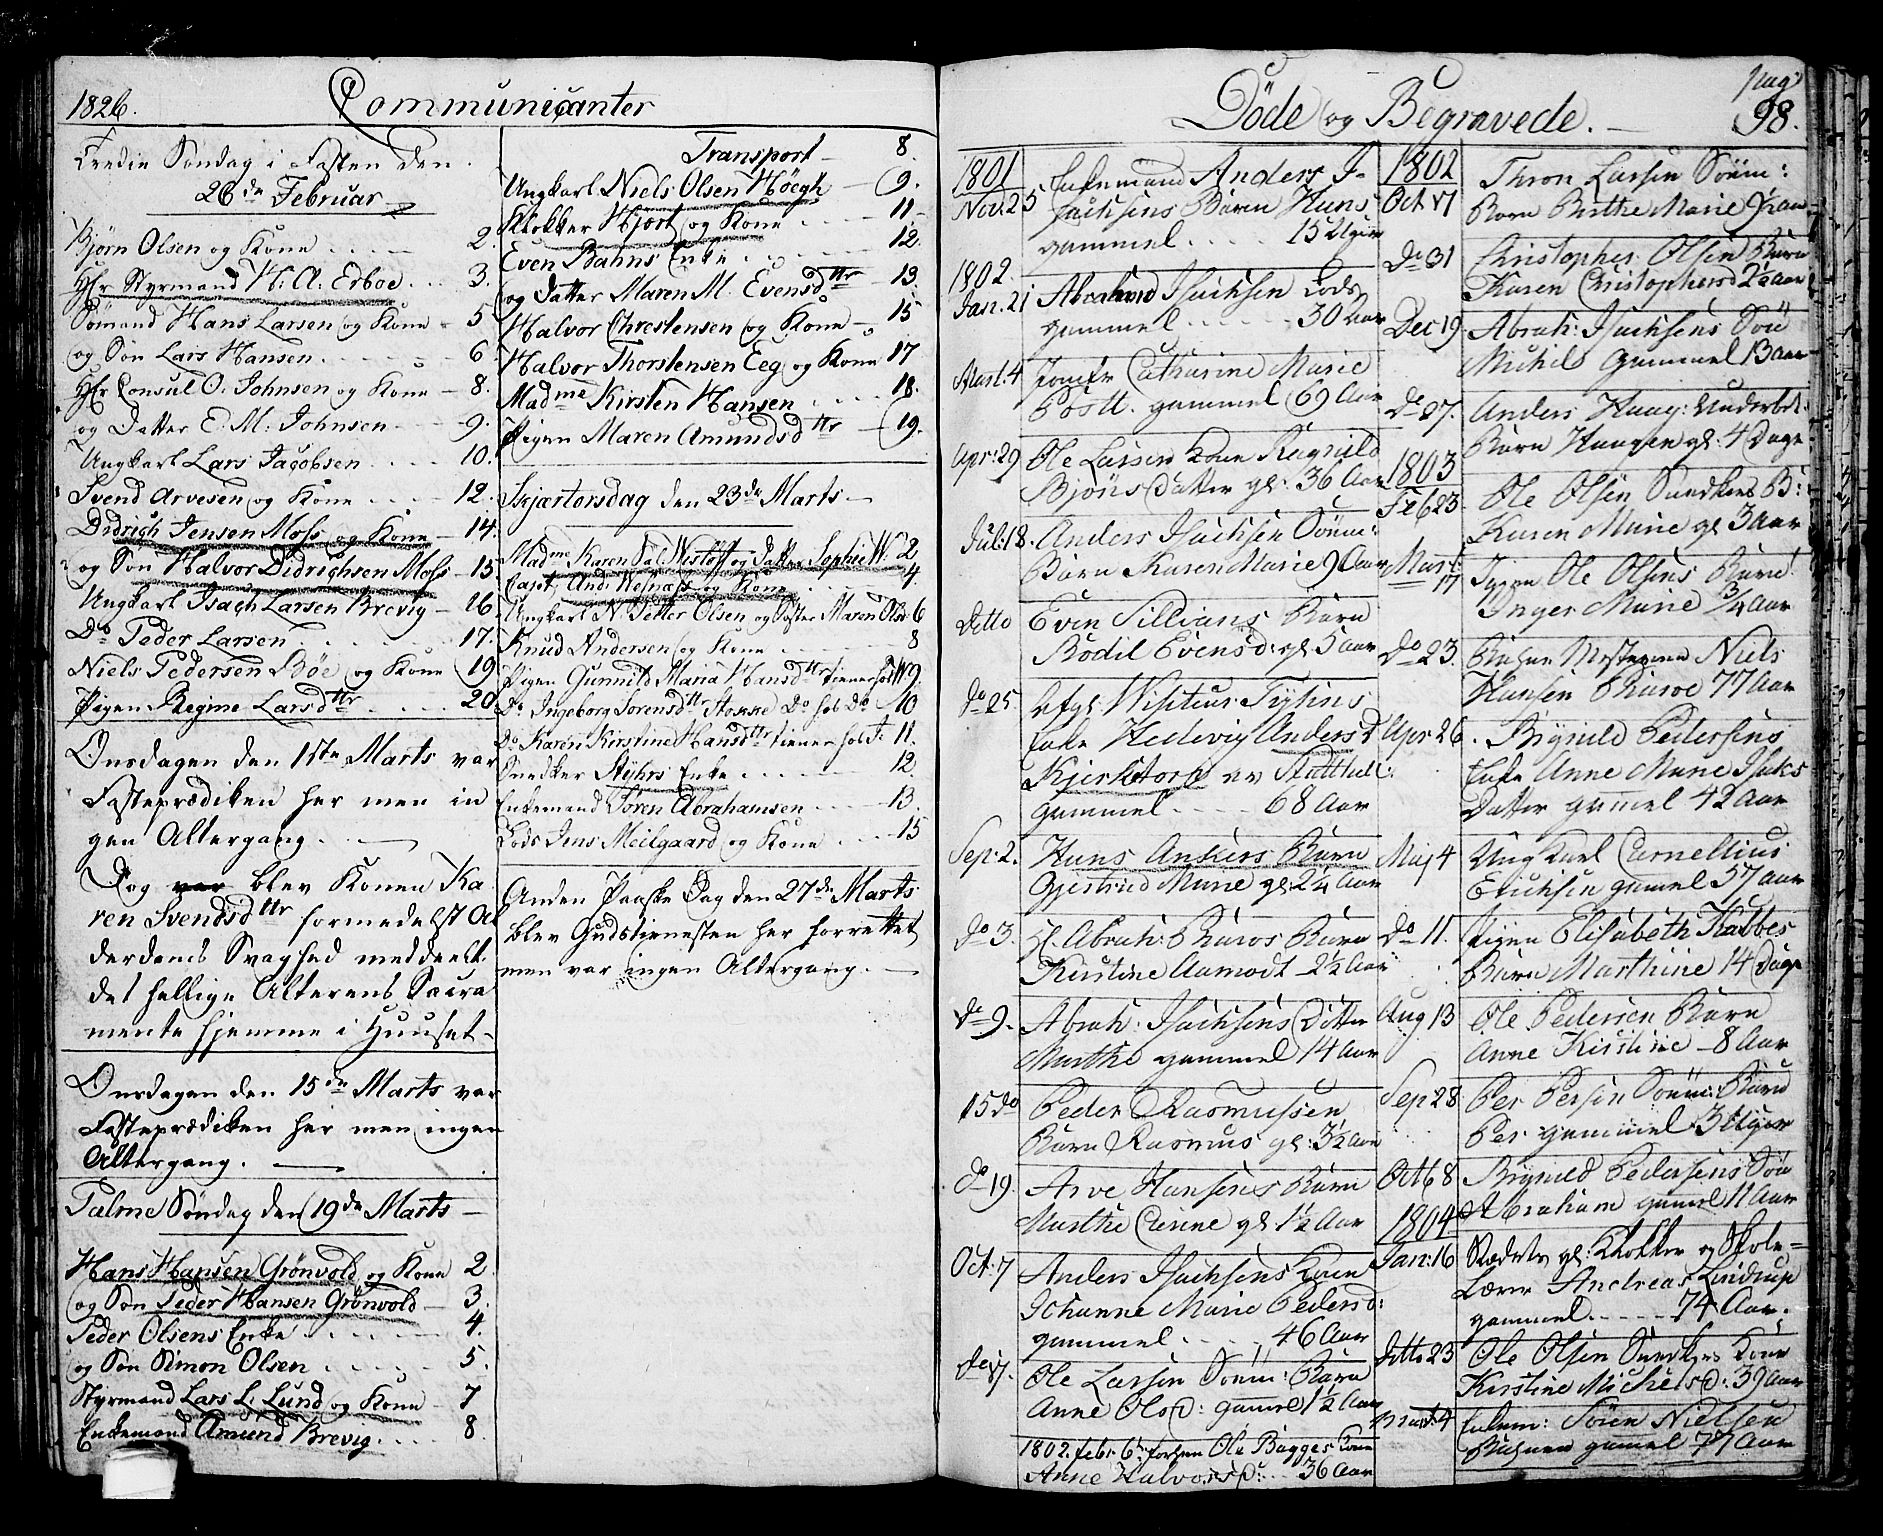 1826.
Communicanter
Tredie Søndag i Fasten den
26de Februar
Bjørn Olsen og Kone 2.
Hr Styrmand H: A: Erboe 3.
Sømand Hans Larsen og Kone 5
og Søn Lars Hansen 6
Hr Consul O: Johnsen og Kone 8.
og Datter E. M: Johnsen 9.
Ungkarl Lars Jacobsen 10.
Svend Arvesen og Kone 12.
Didrich Jensen Moss og Kone 14.
og Søn Halvor Didrichsen Moss 15
Ungkarl Isach Larsen Brevig 16
Do Peder Larsen 17.
Niels Pedersen Bøe og Kone 19
Pigen Regine Larsdttr 20
Onsdagen den 1ste Marts var
Fasteprædiken her men in
gen Altergang.
Dog var blev Konen Ka
ren Svendsdttr formedelst Al
derdoms Svaghed meddeelt
det hellige Alterens Sacra
mente hjemme i Huuset
Onsdagen den 15de Marts var
Fasteprædiken her men ingen
Altergang.
Palme Søndag den 19de Marts
Hans Hansen Grønvold og Kone 2.
og Søn Peder Hansen Grønvold 3.
Peder Olsens Enke 4.
og Søn Simon Olsen 5.
Styrmand Lars L. Lund og Kone 7
Enkemand Amund Brevig 8.
Transport 8.
Ungkarl Niels Olsen Høegh 9.
Klokker Hjort og Kone 11
Even Bahns Enke 12.
og Datter Maren M. Evensdttr 13.
Halvor Chrestensen og Kone 15
Halvor Thorstensen Eeg og Kone 17
Madme Kirsten Hansen 18.
Pigen Maren Amundsdttr 19.
Skjærtorsdag den 23de Marts
Madme Karen Sal. Wistoff og Datter Sophie W. 2
Capt. And Wefnass og Kone 4
Ungkarl N. Petter Olsen og Søster Maren Olsd 6
Knud Andersen og Kone 8
Pigen Gunnild Maria Hansdttr tiener hos W 9.
Do Ingeborg Sørensdttr Stokke Do hos Do 10
Do Karen Kirstine Hansdttr tiener hos 11.
Snedker Styhrs Enke 12.
Enkemand Søren Abrahamsen 13.
Lods Jens Meilgaard og Kone 15
Anden Paaske Dag den 27de Marts
blev Gudstienesten her forrettet
men var ingen Altergang.
pag:
98.
Døde og Begravede.
1801
Nov: 25 Enkemand Anders I-
sachsens Barn Hans
gammel 15 Uger
1802.
Jan: 21 Abraham Isachsen Lods
gammel 30 Aar
Mart: 4 Jomfr Catharine Marie
Postl. gammel 69 Aar
Apr: 29 Ole Larsen Kone Ragnild
Bjørns Datter gl: 36 Aar
Jul: 18. Anders Isachsen Søem:
Barn Karen Marie 9 Aar
Ditto Even Sillians Barn
Bodil Evensd: gl 5 aar
Do 25. Afgl: Visiteur Tysins
Enke Hedevig Andersd
Kjerketorp av Slatthell:
gammel 68 Aar
Sep: 2. Hans Ankers Barn
Gjertrud Marie gl: 2¼ Aar
Do 3. H. Abrah: Pharos Barn
Kirstine Aamodt 2½ Aar
Do 9. Abrah: Isachsens Datter
Marthe gammel 14 Aar
15 do Peder Rasmussen
Barn Rasmus gl: 3½ Aar
Do 19. Arve Hansens Barn
Marthe Cirine gl 1½ Aar
Oct: 7 Anders Isachsens Kone
Johanne Marie Pedersd:
gammel 46 Aar
Do 17. Ole Larsen Søem: Barn
Anne Olsd: gamel 1½ Aar
1802. febr 6te Ole Bagges Kone
Anne Halvorsd: 36 Aar
1802
Oct 17 Thron Larsen Søem:
Barn Birthe Marie ½ aar
Do 31 Christopher Olsen Barn
Karen Christophersd 2½ aar
Dec 19 Abrah: Isachsens Søn
Michel gammel 13 Aar
Do 27. Anders Haag: Underbet.
Barn Haagen gl: 4 Dage
1803
Feb 23 Ole Olsen Snedkers B:
Karen Marie gl 3 aar
Mart: 17 Ole Olsens Barn
Inger Marie ¾ Aar
Do 23. Niels
Hansen Pharoe 77 Aar
Apr 26. Brynild Pedersens
Enke Anne Marie Isaks
Datter gammel 42 Aar
Maj 4 Ungkarl Carnellius
Erichsen gamel 57 aar
Do 11. Pigen Elisabeth Kabbes
Barn Marthine 14 Dage
Aug 13 Ole Pedersen Barn
Anne Kirstine 8 Aar
Sep 28 Per Persen Søem: Barn
Per gammel 3 Uger
Oct 8 Brynild Pedersens Søn
Abraham gamel 11 Aar
1804
Jan: 16 Stedets gl: Klokker og Skole-
Lærer Andreas Lindrup
gammel 74 Aar.
Ditto 23 Ole Olsen Snedkers Kone
Kirstine Michelsd: 39 Aar
Mart: 4 Enkem: Søren Nielsen
gamel 77 Aar